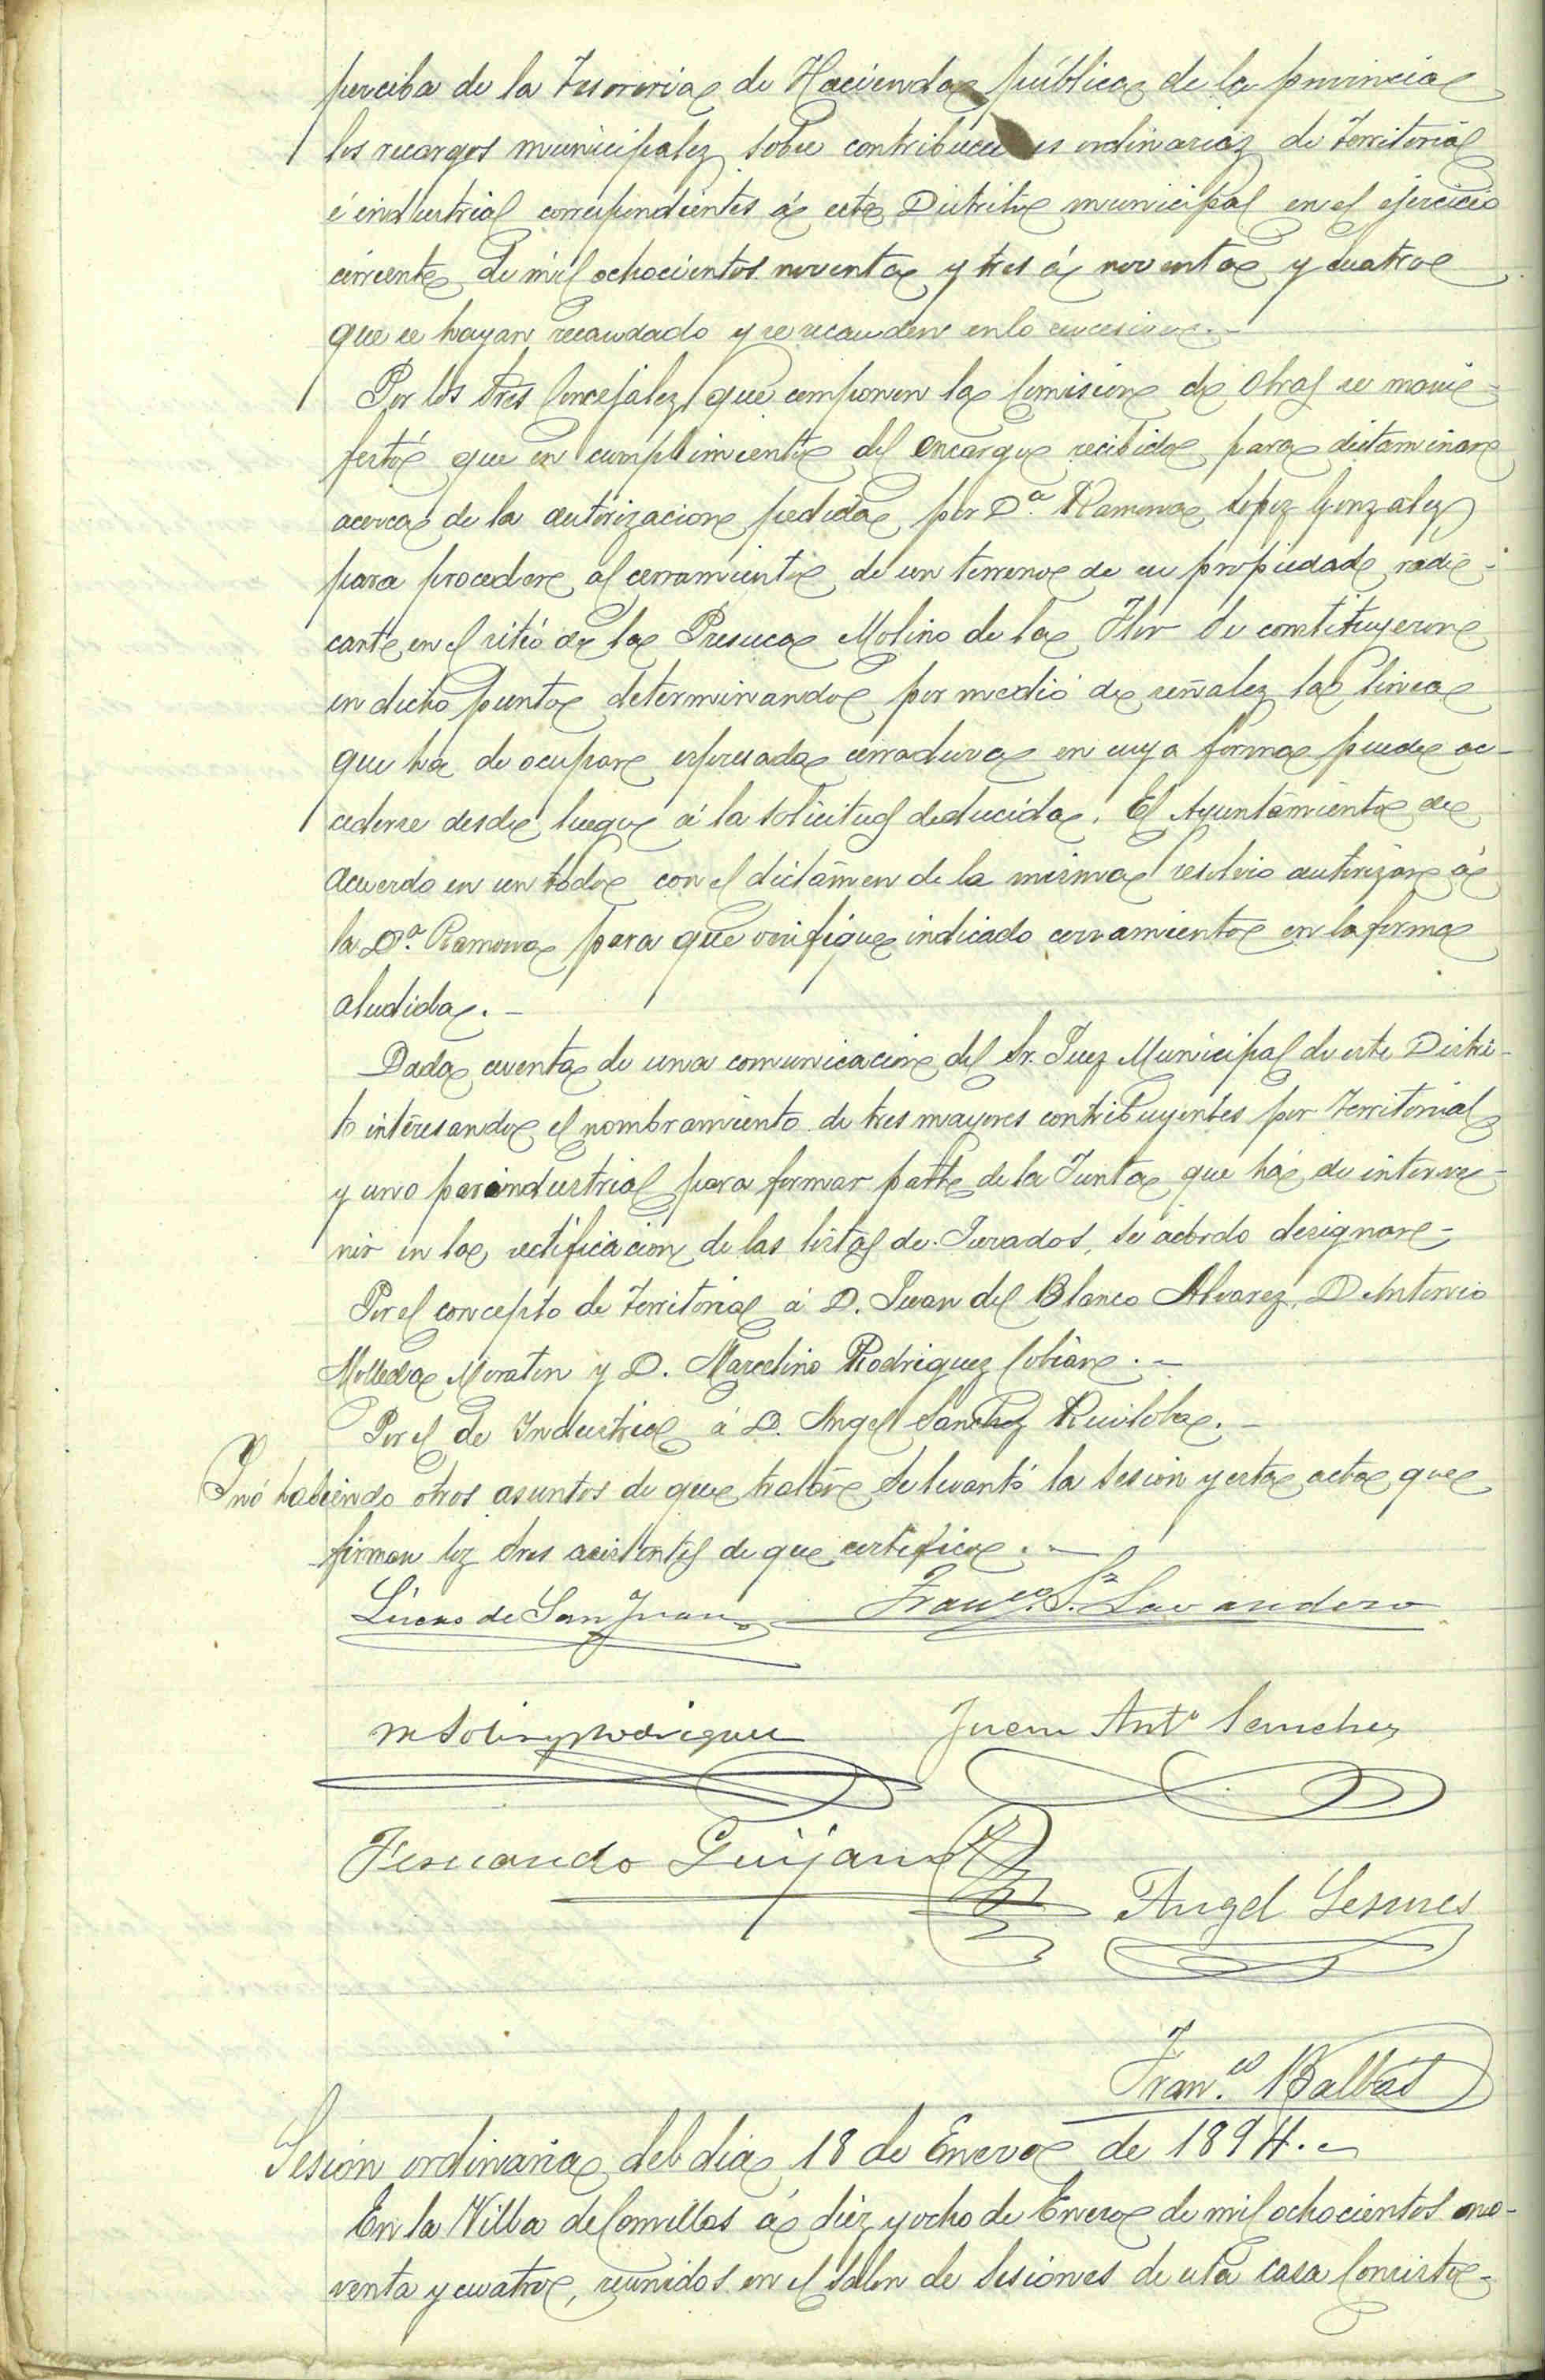 perciba de la Tesoreria de Hacienda pública de la provincia
los recargos municipales sobre contribuciones ordinarias de Territorial
é industrial correspondientes á este Distrito municipal en el ejercicio
corriente de mil ochocientos noventa y tres á noventa y cuatro
que se hayan recaudado y se recauden en lo sucesivo.-
Por los Sres Concejales que componen la Comision de Obras se mani-
festó que en cumplimiento del encargo recibido para dictaminar
acerca de la autorizacion pedida por D.ª Ramona Lopez Gonzalez
para proceder al cerramiento de un terreno de su propiedad radi-
cante en el sitio de la Presuca Molino de la Flor se constituyeron
en dicho punto determinando por medio de señales la linea
que ha de ocupar espresada cerradura en cuya forma puede ac-
cederse desde luego á la solicitud deducida. El Ayuntamiento de
acuerdo en un todo con el dictámen de la misma resolvio autorizar á
la D.ª Ramona para que verifique indicado cerramiento en la forma
aludida.-
Dada cuenta de una comunicacion del Sr. Juez Municipal de este Distri-
to interesando el nombramiento de tres mayores contribuyentes por Territorial
y uno por industrial para formar parte de la Junta que há de interve-
nir en la rectificacion de las listas de Jurados, se acordo designar-
Por el concepto de Territorial á D. Juan del Blanco Alvarez, D. Antonio
Molleda Moratin y D. Marcelino Rodriguez Cobian.-
Por el de Industrial á D. Angel Sanchez Ruiloba.-
Y nó habiendo otros asuntos de que tratar se levantó la sesion y esta acta que
firman los Sres asistentes de que certifico.-
Lucas de San Juan Fran.co S.z Lavandero
M Solis y Rodriguez Juan Ant.o Sanchez
Fernando Guijarro
Angel Lesmes
Fran.co Balbás
Sesion ordinaria del dia 18 de Enero de 1894.-
En la Villa de Comillas á diez y ocho de Enero de mil ochocientos no-
venta y cuatro, reunidos en el Salon de Sesiones de esta casa Consisto-